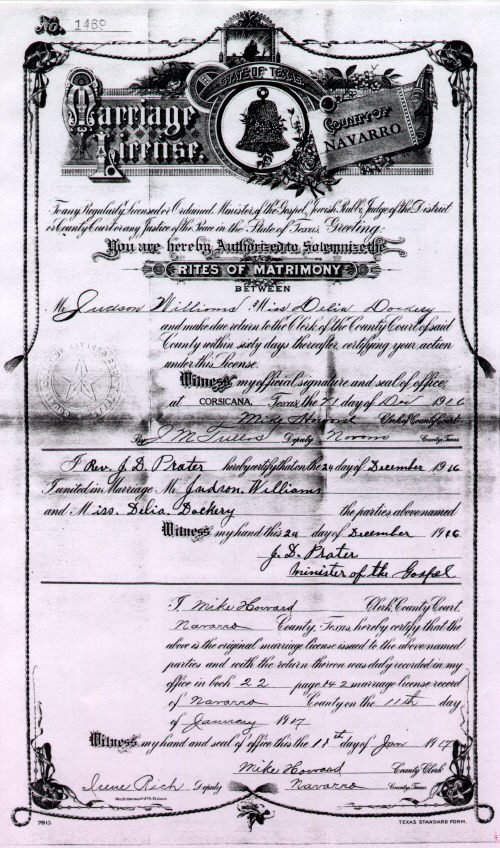 No. 1469
STATE OF TEXAS
Marriage License.
COUNTY OF NAVARRO
To any Regularly Licensed or Ordained Minister of the Gospel, Jewish Rabbi, Judge of the District
or County Court or any Justice of the Peace in the State of Texas, Greeting:
You are hereby Authorized to Solemnize the
RITES OF MATRIMONY
BETWEEN
Mr Judson Williams Miss Delia Dockery
and make due return to the Clerk of the County Court of said
County within sixty days thereafter, certifying your action
under this License.
Witness my official signature and seal of office,
at CORSICANA, Texas, the 21 day of Dec 1916
Mike Howard Clerk of County Court
By J M Tullos Deputy Navarro County, Texas
I Rev. J. D. Prater hereby certify that on the 24 day of December 1916
I united in Marriage Mr. Judson. Williams
and Miss. Delia Dockery the parties above named
Witness my hand this 24 day of December 1916
J. D. Prater
Minister of the Gospel
I Mike Howard Clerk, County Court,
Navarro County, Texas, hereby certify that the
above is the original marriage license issued to the above named
parties and with the return thereon was duly recorded in my
office in book 22 page 142 marriage license record
of Navarro County on the 11th day
of January 1917
Witness my hand and seal of office this the 11th day of Jan 1917
Mike Howard County Clerk
Irene Rich Deputy Navarro County, Texas
7813
TEXAS STANDARD FORM.